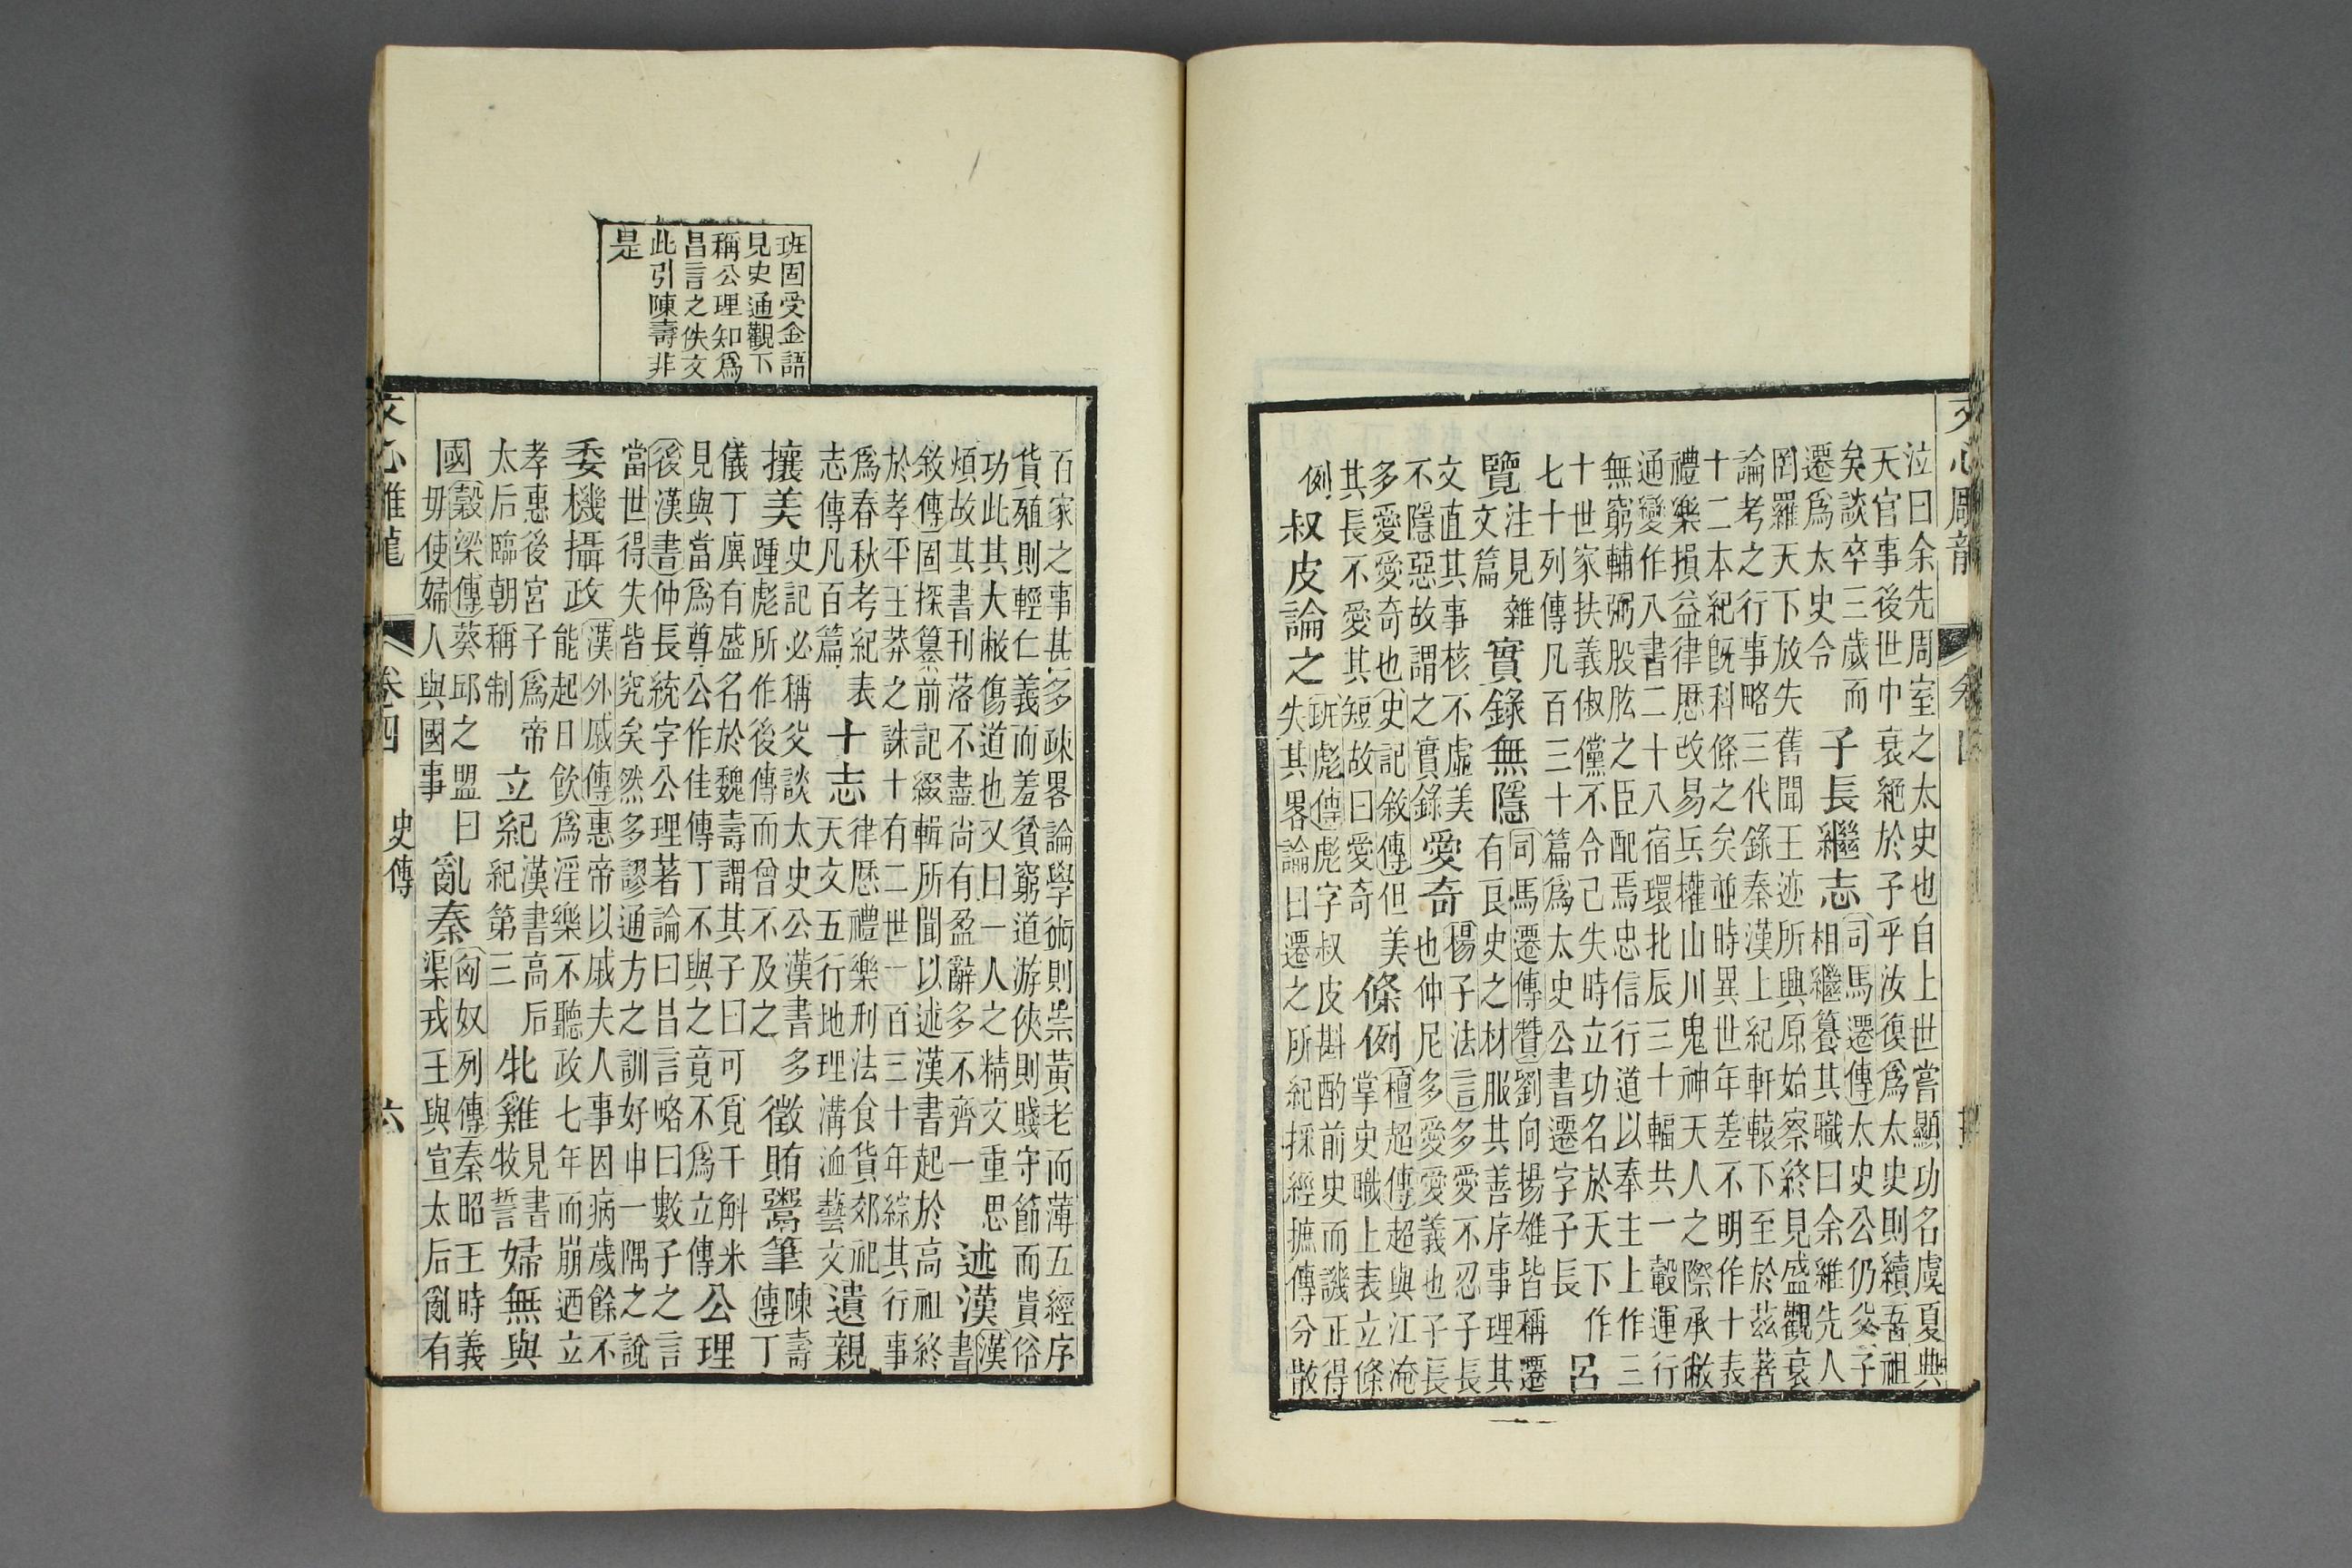 文心雕龍
卷四
泣曰余先周室之太史也自上世嘗顯功名虞夏典
天官事後世中衰絕於予乎汝復爲太史則續吾祖
矣談卒三歲而
遷爲太史令
子長繼志
司馬遷傳太史公仍父子
相繼纂其職曰余維先人
罔羅天下放失舊聞王迹所興原始察終見盛觀衰
論考之行事略三代錄秦漢上紀軒轅下至於茲著
十二本紀既科條之矣並時異世年差不明作十表
禮樂損益律厯改易兵權山川鬼神天人之際承敝
通變作八書二十八宿環北辰三十輻共一轂運行
無窮輔弼股肱之臣配焉忠信行道以奉主上作三
十世家扶義俶儻不令己失時立功名於天下作
七十列傳凡百三十篇爲太史公書遷字子長
呂
覽
注見雜
文篇
實錄無隱
司馬遷傳贊劉向揚雄皆稱遷
有良史之材服其善序事理其
文直其事核不虛美
不隱惡故謂之實錄
愛奇
楊子法言多愛不忍子長
也仲尼多愛愛義也子長
多愛愛奇也史記敘傳但美
其長不愛其短故曰愛奇
條例
檀超傳超與江淹
掌史職上表立條
例
叔皮論之
班彪傳彪字叔皮斟酌前史而譏正得
失其畧論曰遷之所紀採經摭傳分散
班固受金語
見史通觀下
稱公理知爲
昌言之佚文
此引陳壽非
是
百家之事甚多疎畧論學術則崇黃老而薄五經序
貨殖則輕仁義而羞貧窮道游俠則賤守節而貴俗
功此其大敝傷道也又曰一人之精文重思
煩故其書刊落不盡尚有盈辭多不齊一
述漢
漢
書
敘傳固探纂前記綴輯所聞以述漢書起於高祖終
於孝平王莽之誅十有二世一百三十年綜其行事
爲春秋考紀表
志傳凡百篇
十志
律厯禮樂刑法食貨郊祀
天文五行地理溝洫藝文
遺親
攘美
史記必稱父談太史公漢書多
踵彪所作後傳而曾不及之
徵賄鬻筆
陳壽
傳丁
儀丁廙有盛名於魏壽謂其子曰可覓千斛米
見與當爲尊公作佳傳丁不與之竟不爲立傳
公理
後漢書仲長統字公理著論曰昌言略曰數子之言
當世得失皆究矣然多謬通方之訓好申一隅之說
委機攝政
漢外戚傳惠帝以戚夫人事因病歲餘不
能起日飲爲淫樂不聽政七年而崩迺立
孝惠後宮子爲帝
太后臨朝稱制
立紀
漢書高后
紀第三
牝雞
見書
牧誓
婦無與
國
穀梁傳葵邱之盟曰
毋使婦人與國事
亂秦
匈奴列傳秦昭王時義
渠戎王與宣太后亂有
文心雕龍
卷四
史傳
六